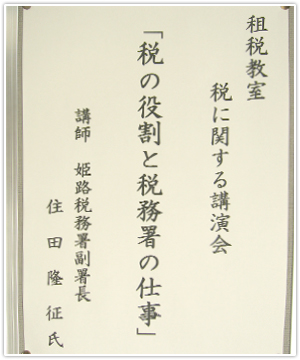 租税教室
税に関する講演会
「税の役割と税務署の仕事」
講師 姫路税務署副署長
住田隆征氏